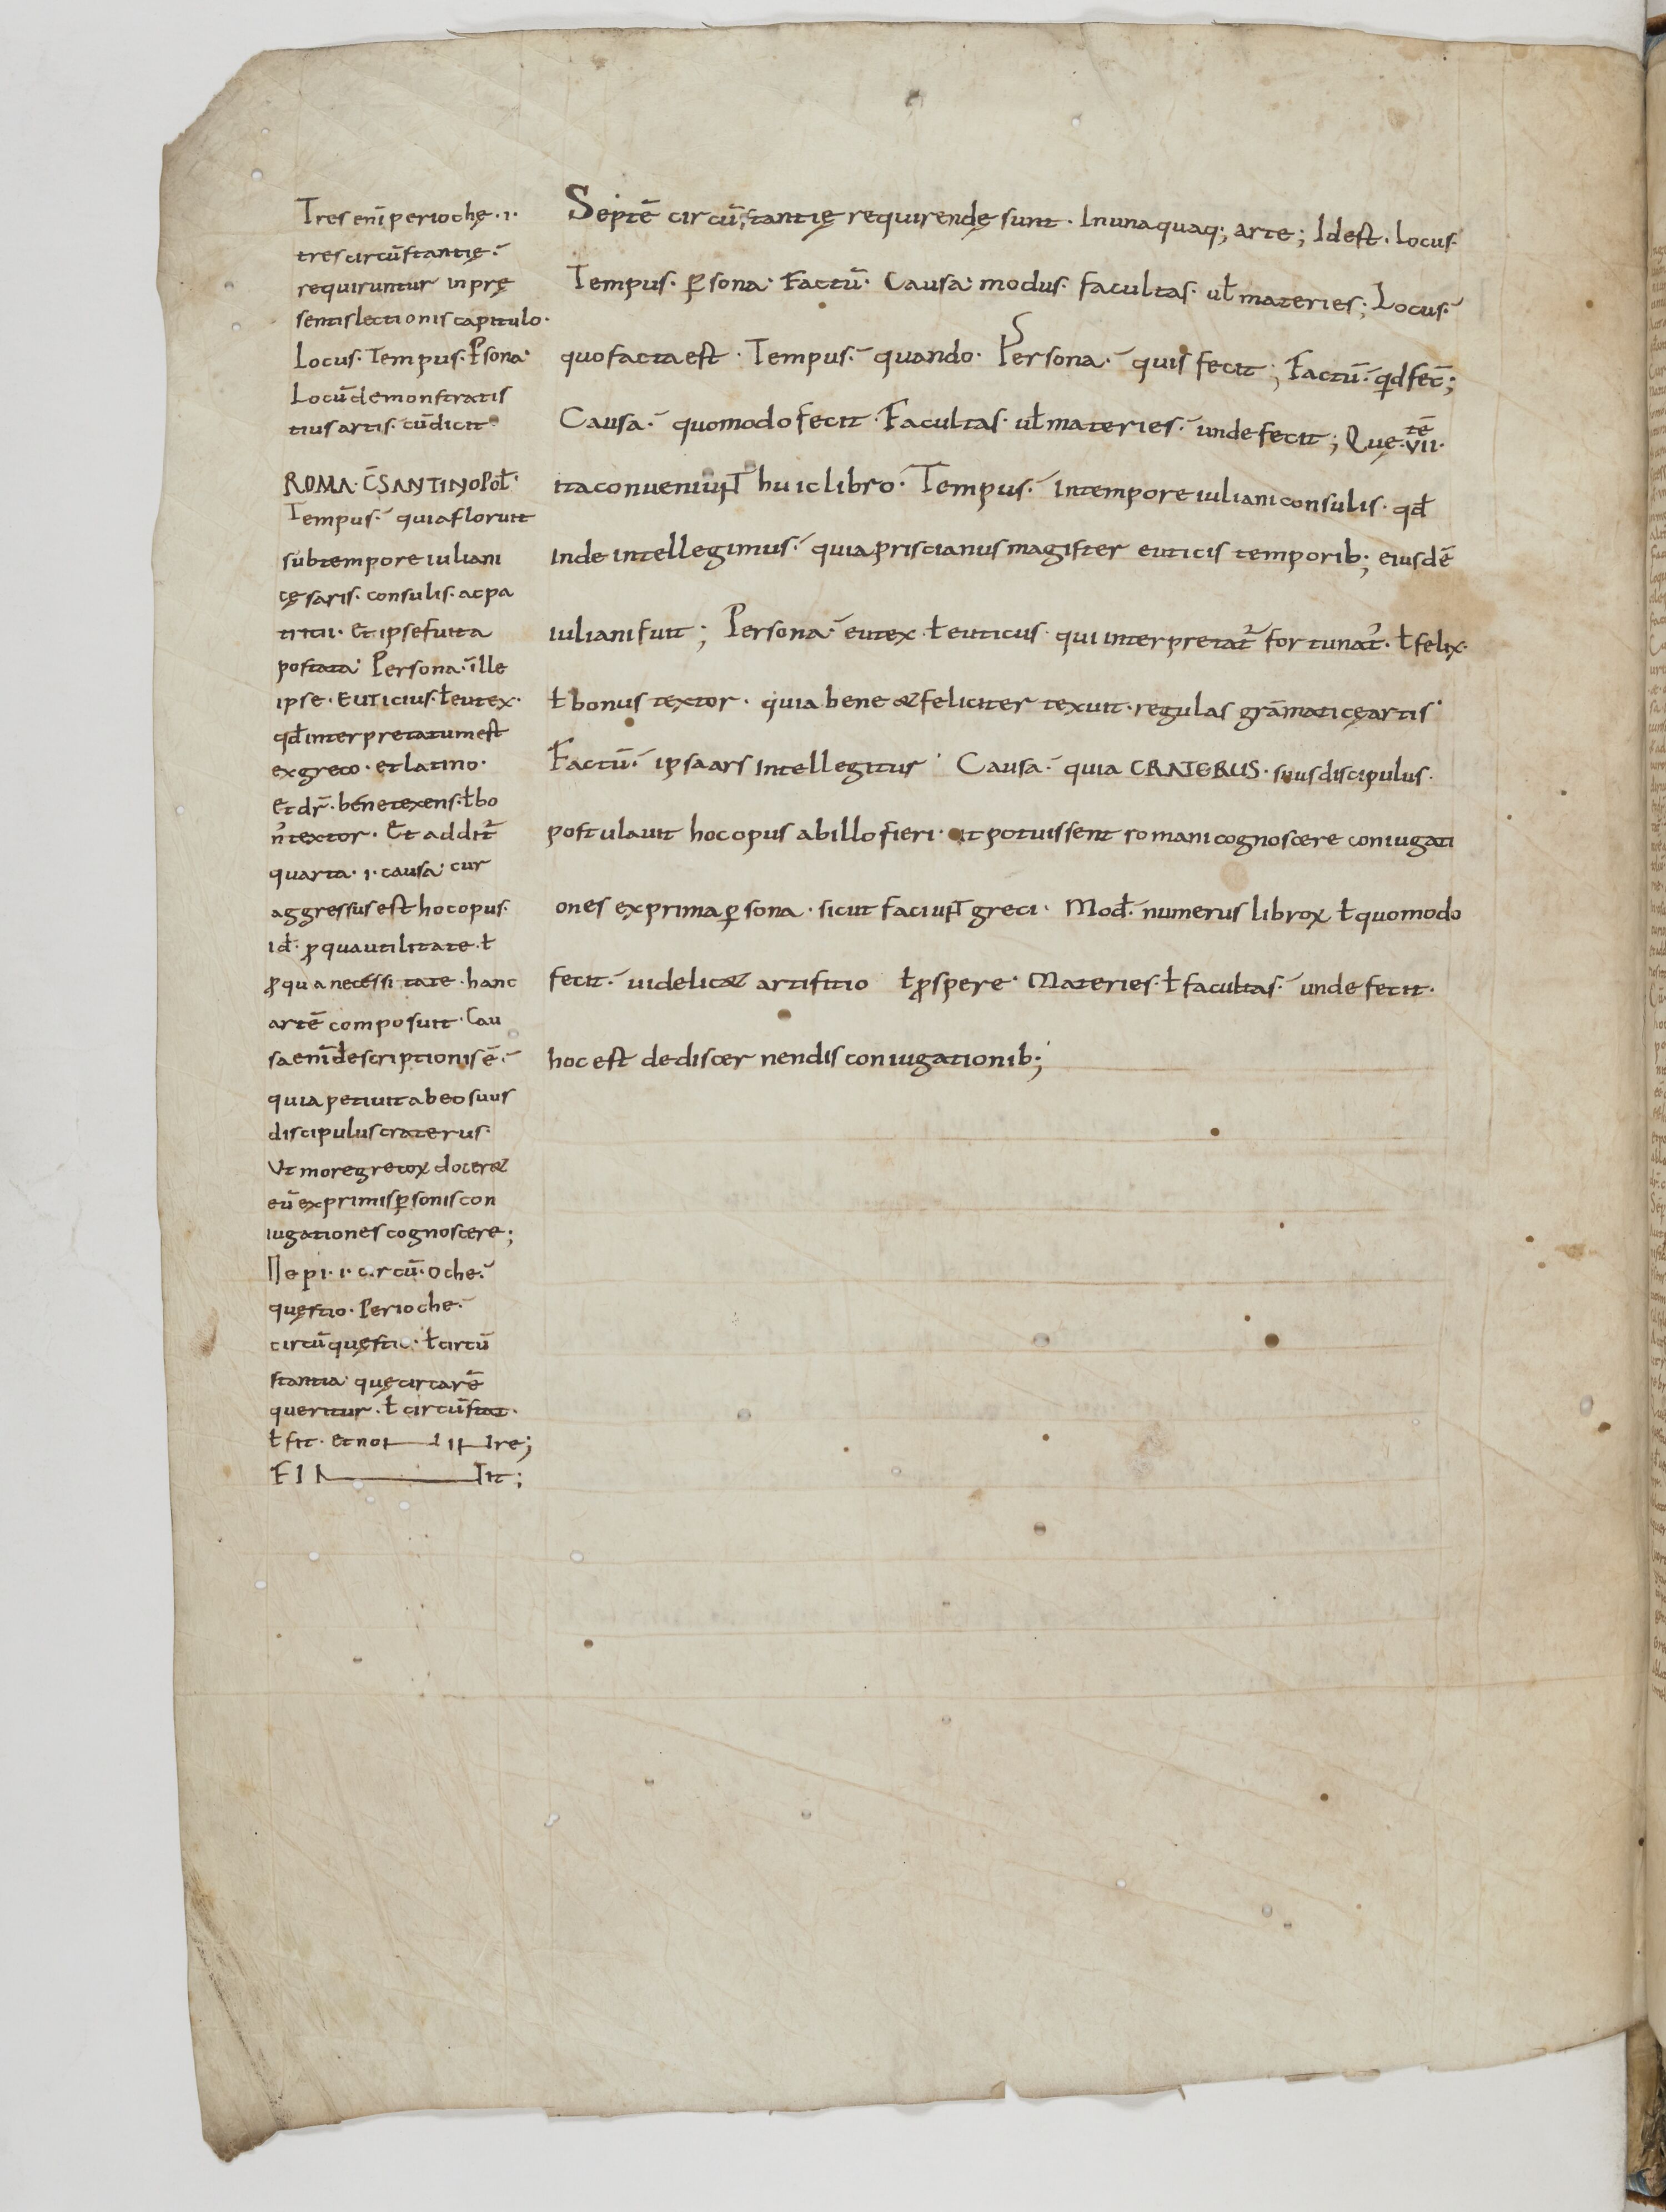 Tres eni̅ periochę · i ·
tres circu̅stantię ·
requiruntur in prę
sentis lectionis capitulo ·
Locus · Tempus · P̲sona ·
Locu̅ demonstratis
tius artis · cu̅ dicit ·
ROMA · C̅SANTINOPOŁ ·
Tempus · quia floruit
sub tempore iuliani
cęsaris · consulis · ac pa
tricii · Et ipse fuit a
postata · Persona · ille
ipse · Euticius · ł eutex ·
qđ interpretatum est
ex greco · et latino ·
Et dr̅ · bene texens · ł bo
n᾿ textor · Et addit᾿
quarta · i · causa · cur
aggressus est hoc opus ·
i đ · ꝓ qua utilitate · ł
ꝓ qua necessitate · hanc
arte̅ composuit · Cau
sa eni̅ descriptionis e̅ ·
quia petiuit ab eo suus
discipulus craterus ·
Vt more grecoꝝ doceret
eu̅ ex primis ꝑsonis con
iugationes cognoscere ;
Π epi · i · circu̅ · oche ·
quęstio · Perioche ·
circu̅quęstio · ł circu̅
stantia · quę circa re̅
queritur · ł circu̅stat ·
ł fit ·
FIN IT ;
Septe̅ circu̅stantię requirendę sunt · In unaquaq; arte ; Id est · locus ·
Tempus · ꝑsona · Factu̅ · Causa · modus · facultas · uł materies ; Locus ·
quo facta est · Tempus · quando · Persona · quis fecit ; Factu̅ · qd fec̅ ;
Causa · quomodo fecit · Facultas · uł materies · unde fecit ; Quę · vii · te̅
ita conueniunt huic libro · Tempus · In tempore iuliani consulis · qđ
inde intellegimus · quia priscianus magister euticis temporib; eiusde̅
iuliani fuit ; Persona · eutex · ł euticus · qui interpretat᾿ fortunat᾿ · ł felix ·
ł bonus textor · quia bene & feliciter texuit · regulas gra̅maticę artis ·
Factu̅ · ipsa ars intellegitur · Causa · quia CRATERUS · suus discipulus ·
postulauit hoc opus ab illo fieri · ut potuissent romani cognoscere coniugati
ones ex prima ꝑsona · sicut faciunt greci · Mođ · numerus libroꝝ ł quomodo
fecit · uidelicet artifitio ł ꝓspere · Materies · ł facultas · unde fecit ·
hoc est de discernendis coniugationib;